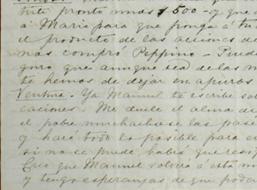 pronto unas $500 - y que
á Mario para que ponga á tu
el producto de las acciones de
mas compró Peppino - Puede
que aunque sea de las
te hemos de dejar en apuros
Ventura. Ya Manuel te escribe sob
caciones. Me duele el alma de
el pobre muchacho se las pas
y haré todo lo posible para
si no se puede habrá que
Creo que Manuel volverá á esta
y tengo esperanzas de que poda